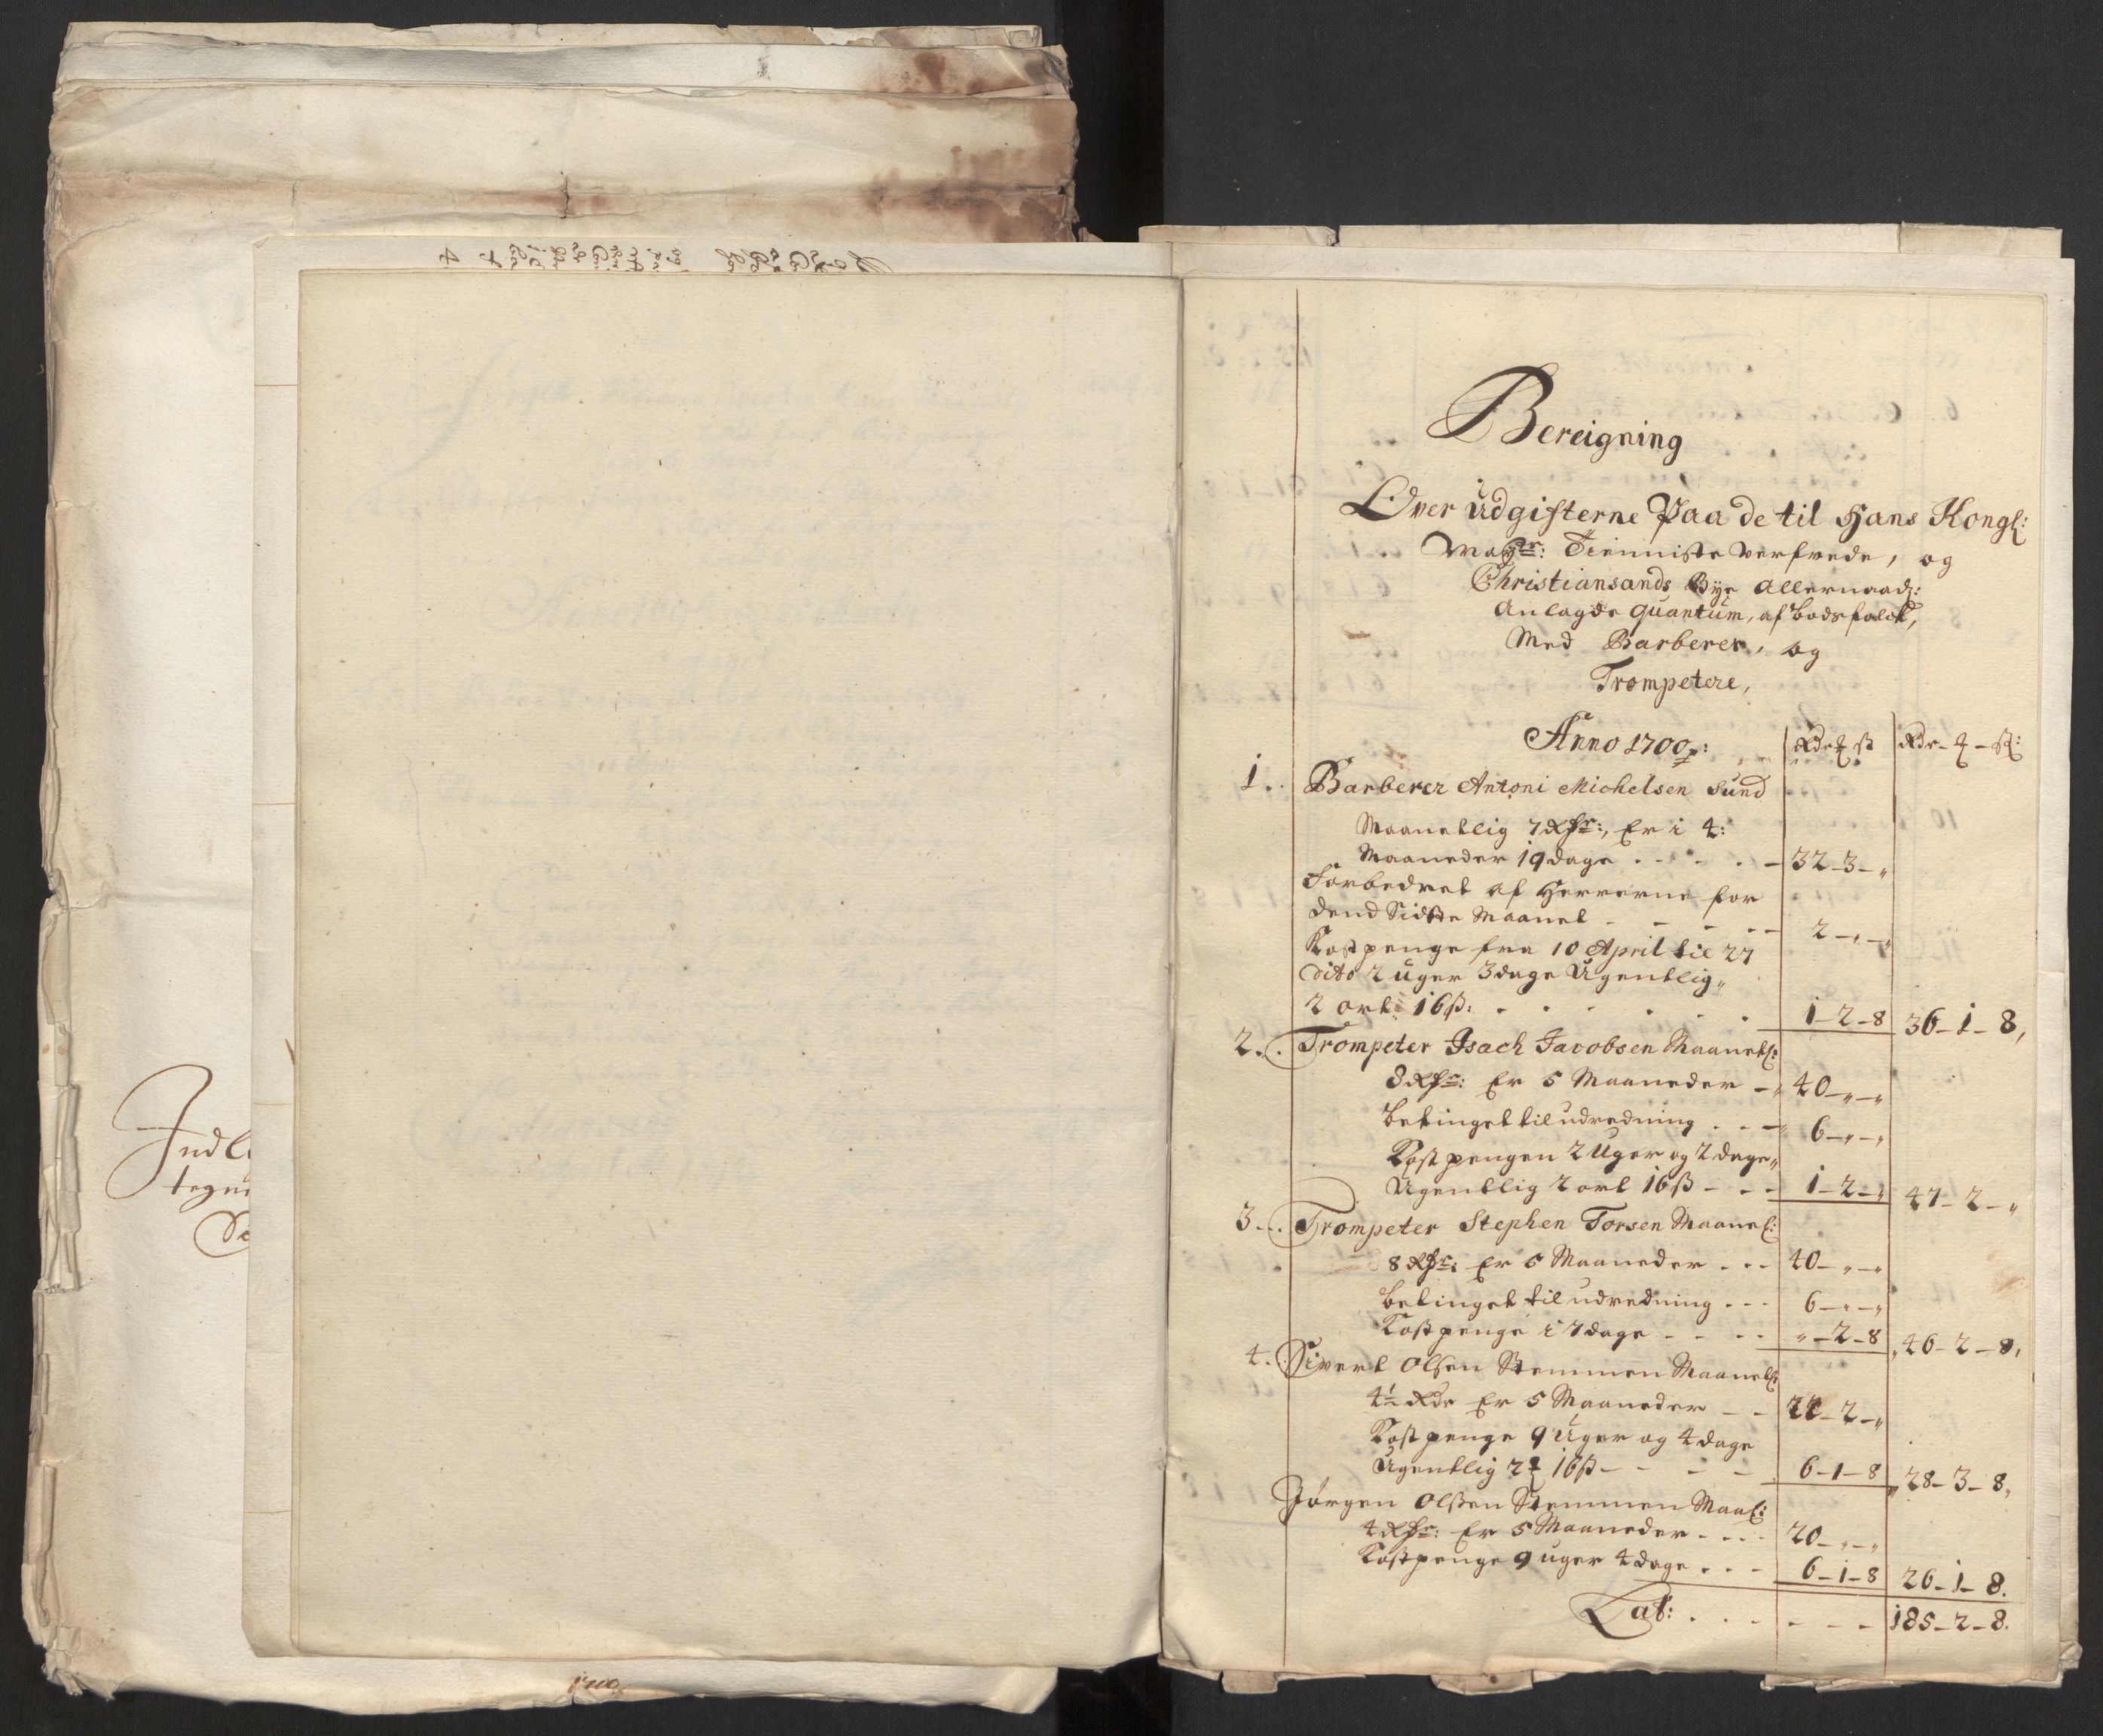 Indl
tegn
De
1700
Bereigning
Over Udgifterne Paa de til Hans Kongl:
Mayts: Tienniste Verfvede, og
Christiansands Bye Allernaad:
Anlagde Quantum, af Bodsfolck,
Med Barberer, og
Trompetere,
Anno 1700: Rdr ß Rdr ß:
1. Barberer Antoni Michelsen Sund
Maanetlig 7 Rdr:, Er i 4:
Maaneder 19 dage 32-3-„
Forbedret af Herrerne for
dend Sidste Maanet 2-„-„
Kostpenge fra 10 April til 27
dito 2 Uger 3 dage Ugentlig„
2 ort 16ß: 1-2-8 36-1-8,
2. Trompeter Isach Jacobsen Maanetl:
8 Rdr: Er 5 Maaneder 40-„-„
betinget til udredning 6-„-„
Kost pengen 2 Uger og 2 dage„
Ugentlig 2 ort 16ß 1-2-„ 47-2-„
3. Trompeter Stephen Torsen Maanel:
8 Rdr: Er 5 Maaneder 40-„-„
betinget til udredning 6-„-„
Kostpenge i 7 dage „-2-8 46-2-8,
4. Sivert Olsen Stemmen Maanetl:
4½ Rdr Er 5 Maaneder 22-2-„
Kostpenge 9 Uger og 4 dage
Ugentlig 2 16ß 6-1-8 28-3-8,
Jørgen Olssen Stemmen Maal:
4 Rdr: Er 5 Maaneder 20-„-„
Kostpenge 9 uger 4 dage 6-1-8 26-1-8.
Lat: 185-2-8.